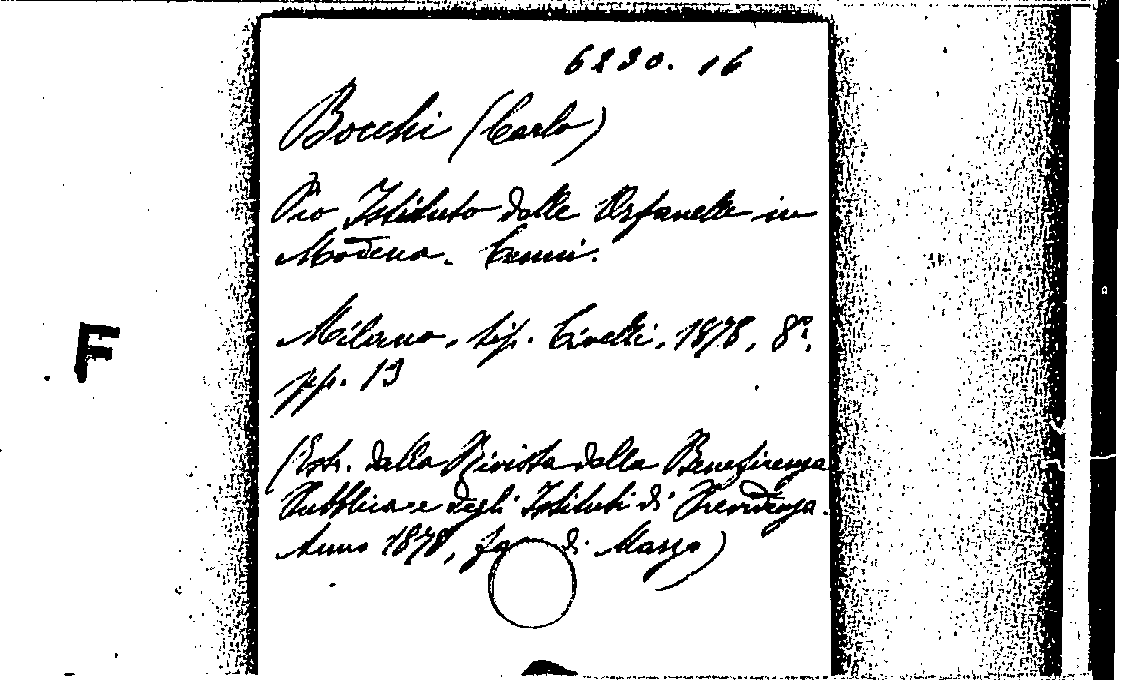 6230. 16
Bocchi (Carlo)
Pio Istituto delle Orfanelle in
Modena. Cenni.
Milano, tip. Civelli, 1878, 8º,
pp. 13
F
(Estr. dalla Rivista della Beneficenza
Pubblica e degli Istituti di Previdenza.
Anno 1878, di Marzo)